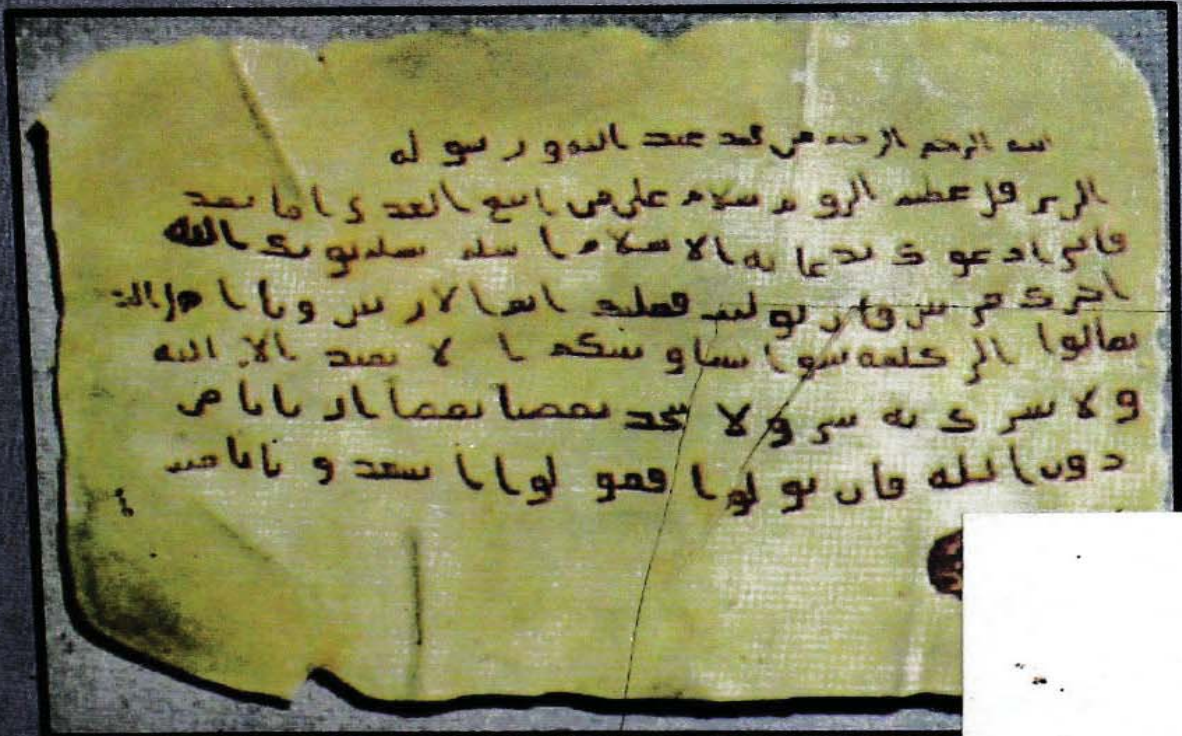 بسم الله الرحمن الرحيم من محمد عبد الله و رسوله
الى هرقل عظيم الروم سلام على من اتبع الهدى اما بعد
فانى ادعوك بدعاية الاسلام اسلم تسلم يوتك الله
اجرك مرتين فان توليت فعليك اثم الاريسين ويا اهل الكتاب
تعالوا الى كلمة سوا بيننا وبينكم الا نعبد الا الله
ولا نشرك به شيئا ولا يتخذ بعضنا بعضا اربابا من
دون الله فان تولوا فقولوا اشهدوا بانا مسلمون